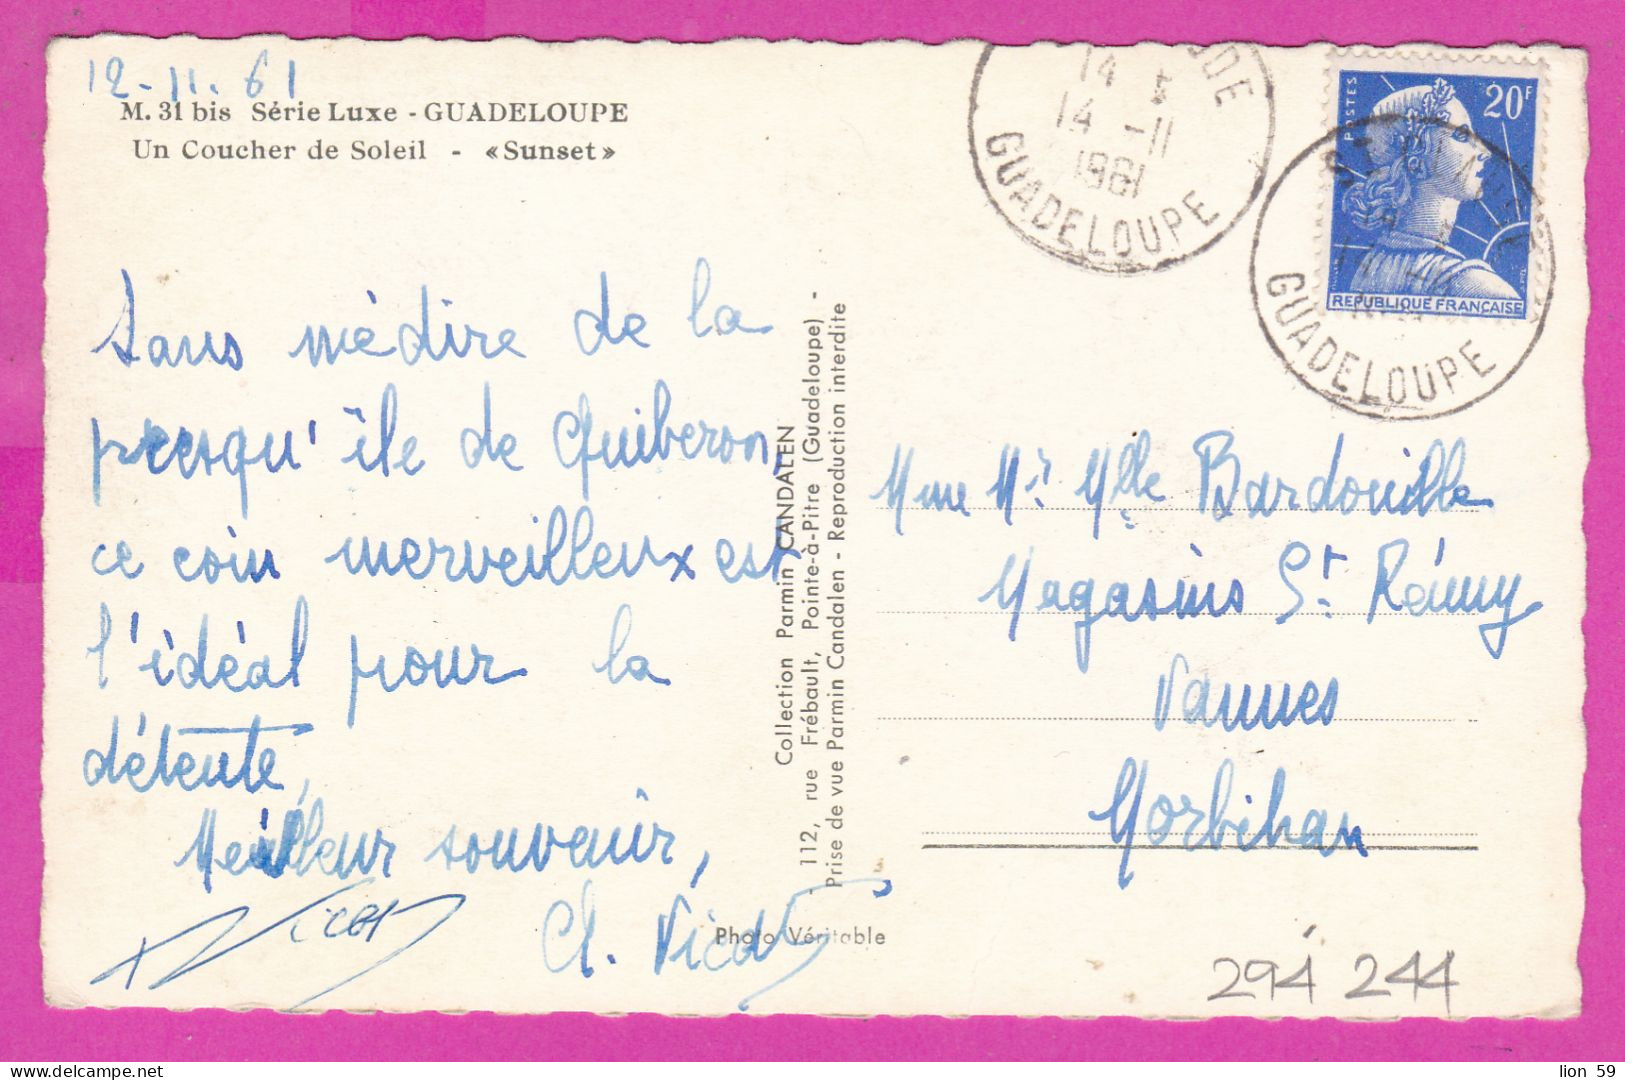 12-11.61
M. 31 bis Série Luxe - GUADELOUPE
Un Coucher de Soleil - «Sunset»
Sans médire de la
presqu'île de Quiberon,
ce coin merveilleux est
l'idéal pour la
détente,
Meilleur souvenir,
Cl. Vicat
Photo Véritable
Collection Parmin CANDALEN
112, rue Frébault, Pointe-à-Pitre (Guadeloupe) -
Prise de vue Parmin Candalen - Reproduction interdite
14
14 -11
1961
GUADELOUPE
POSTES
20F
REPUBLIQUE FRANÇAISE
ST CLAUDE
GUADELOUPE
Mme Mr Mlle Bardouille
Magasins St Rémy
Vannes
Morbihan
294 244
lion 59
delcampe.net